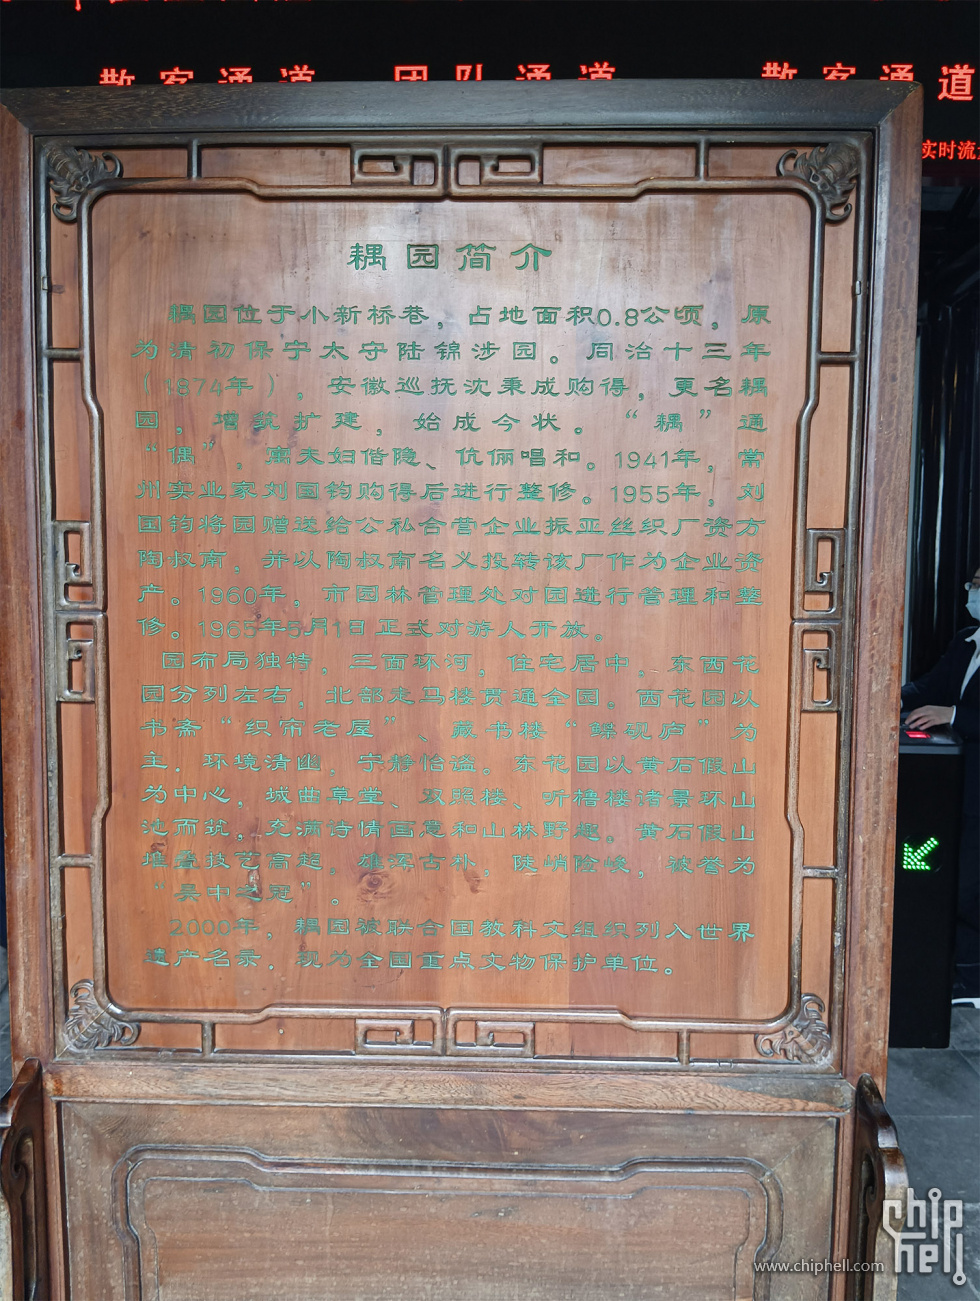 散客通道 团队通道 散客通道
实时流
耦园简介
耦园位于小新桥巷，占地面积0.8公顷，原
为清初保宁太守陆锦涉园。同治十三年
（1874年），安徽巡抚沈秉成购得，更名耦
园，增筑扩建，始成今状。“耦”通
“偶”，寓夫妇偕隐、伉俪唱和。1941年，常
州实业家刘国钧购得后进行整修。1955年，刘
国钧将园赠送给公私合营企业振亚丝织厂资方
陶叔南，并以陶叔南名义投转该厂作为企业资
产。1960年，市园林管理处对园进行管理和整
修。1965年5月1日正式对游人开放。
园布局独特，三面环河，住宅居中，东西花
园分列左右，北部走马楼贯通全园。西花园以
书斋“织帘老屋”、藏书楼“鲽砚庐”为
主，环境清幽，宁静怡谧。东花园以黄石假山
为中心，城曲草堂、双照楼、听橹楼诸景环山
池而筑，充满诗情画意和山林野趣。黄石假山
堆叠技艺高超，雄浑古朴，陡峭险峻，被誉为
“吴中之冠”。
2000年，耦园被联合国教科文组织列入世界
遗产名录，现为全国重点文物保护单位。
chip
hell
www.chiphell.com